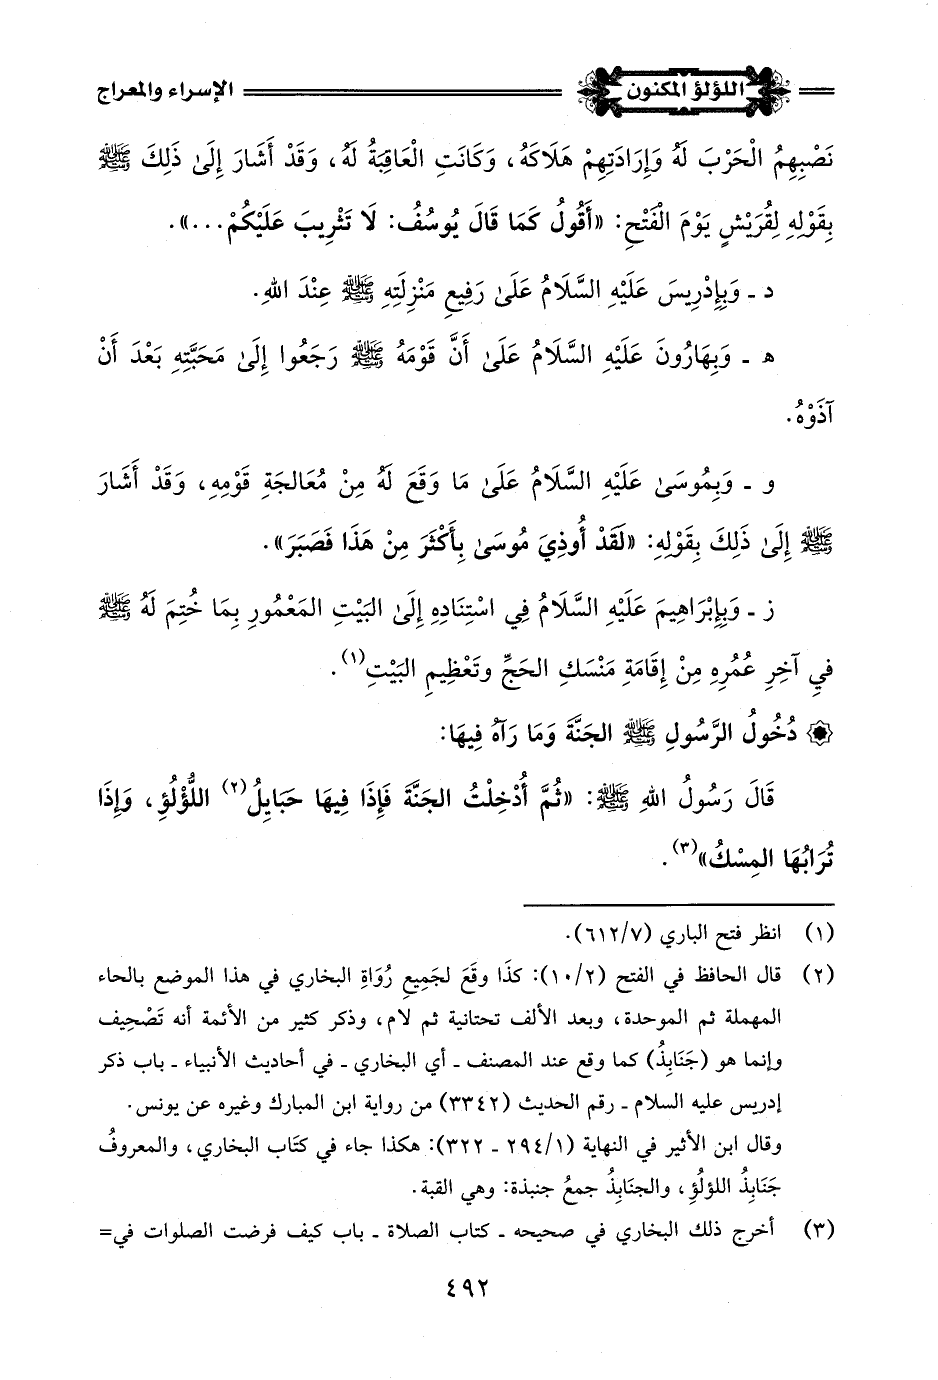 اللؤلؤ المكنون الإسراء والمعراج
نَصْبِهِمُ الْحَرْبَ لَهُ وَإِرَادَتِهِمْ هَلَاكَهُ، وَكَانَتِ الْعَاقِبَةُ لَهُ، وَقَدْ أَشَارَ إِلَىٰ ذَلِكَ ﷺ
بِقَوْلِهِ لِقُرَيْشٍ يَوْمَ الْفَتْحِ: «أَقُولُ كَمَا قَالَ يُوسُفُ: لَا تَثْرِيبَ عَلَيْكُمْ...».
د ـ وَبِإِدْرِيسَ عَلَيْهِ السَّلَامُ عَلَىٰ رَفِيعِ مَنْزِلَتِهِ ﷺ عِنْدَ اللهِ.
هـ ـ وَبِهَارُونَ عَلَيْهِ السَّلَامُ عَلَىٰ أَنَّ قَوْمَهُ ﷺ رَجَعُوا إِلَىٰ مَحَبَّتِهِ بَعْدَ أَنْ
آذَوْهُ.
و ـ وَبِمُوسَىٰ عَلَيْهِ السَّلَامُ عَلَىٰ مَا وَقَعَ لَهُ مِنْ مُعَالجَةِ قَوْمِهِ، وَقَدْ أَشَارَ
ﷺ إِلَىٰ ذَلِكَ بِقَوْلِهِ: «لَقَدْ أُوذِيَ مُوسَىٰ بِأَكْثَرَ مِنْ هَذَا فَصَبَرَ».
ز ـ وَبِإِبْرَاهِيمَ عَلَيْهِ السَّلَامُ فِي اسْتِنَادِهِ إِلَىٰ البَيْتِ المَعْمُورِ بِمَا خُتِمَ لَهُ ﷺ
فِي آخِرِ عُمُرِهِ مِنْ إِقَامَةِ مَنْسَكِ الحَجِّ وتَعْظِيمِ البَيْتِ(١).
دُخُولُ الرَّسُولِ ﷺ الجَنَّةَ وَمَا رَآهُ فِيهَا:
قَالَ رَسُولُ اللهِ ﷺ: «ثُمَّ أُدْخِلْتُ الجَنَّةَ فَإِذَا فِيهَا حَبَايِلُ(٢) اللُّؤْلُؤِ، وَإِذَا
تُرَابُهَا المِسْكُ»(٣).
(١) انظر فتح الباري (٦١٢/٧).
(٢) قال الحافظ في الفتح (١٠/٢): كذَا وقَعَ لجَمِيعِ رُوَاةِ البخاري في هذا الموضع بالحاء
المهملة ثم الموحدة، وبعد الألف تحتانية ثم لام، وذكر كثير من الأئمة أنه تَصْحِيف
وإنما هو (جَنَابِذُ) كما وقع عند المصنف ـ أي البخاري ـ في أحاديث الأنبياء ـ باب ذكر
إدريس عليه السلام ـ رقم الحديث (٣٣٤٢) من رواية ابن المبارك وغيره عن يونس.
وقال ابن الأثير في النهاية (٢٩٤/١ ـ ٣٢٢): هكذا جاء في كتَاب البخاري، والمعروفُ
جَنَابِذُ اللؤلُؤِ، والجنَابِذُ جمعُ جنبذة: وهي القبة.
(٣) أخرج ذلك البخاري في صحيحه ـ كتاب الصلاة ـ باب كيف فرضت الصلوات في=
٤٩٢